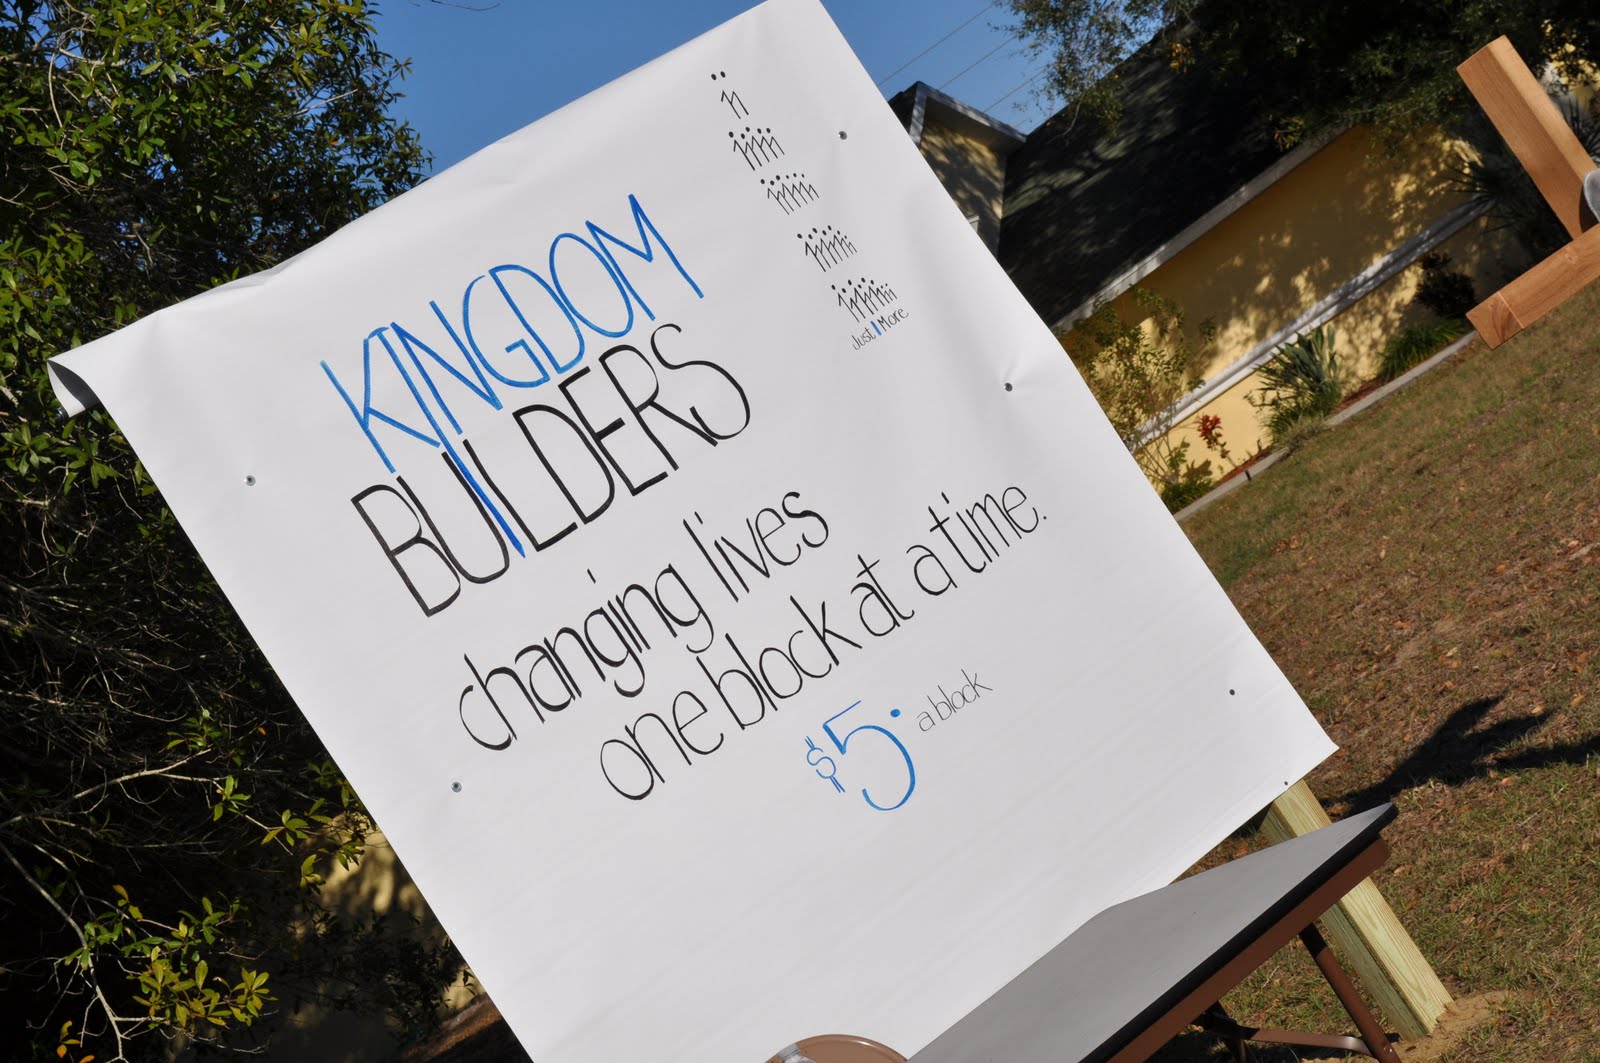 Just 1 More
KINGDOM
BUILDERS
changing lives
one block at a time.
$5. a block